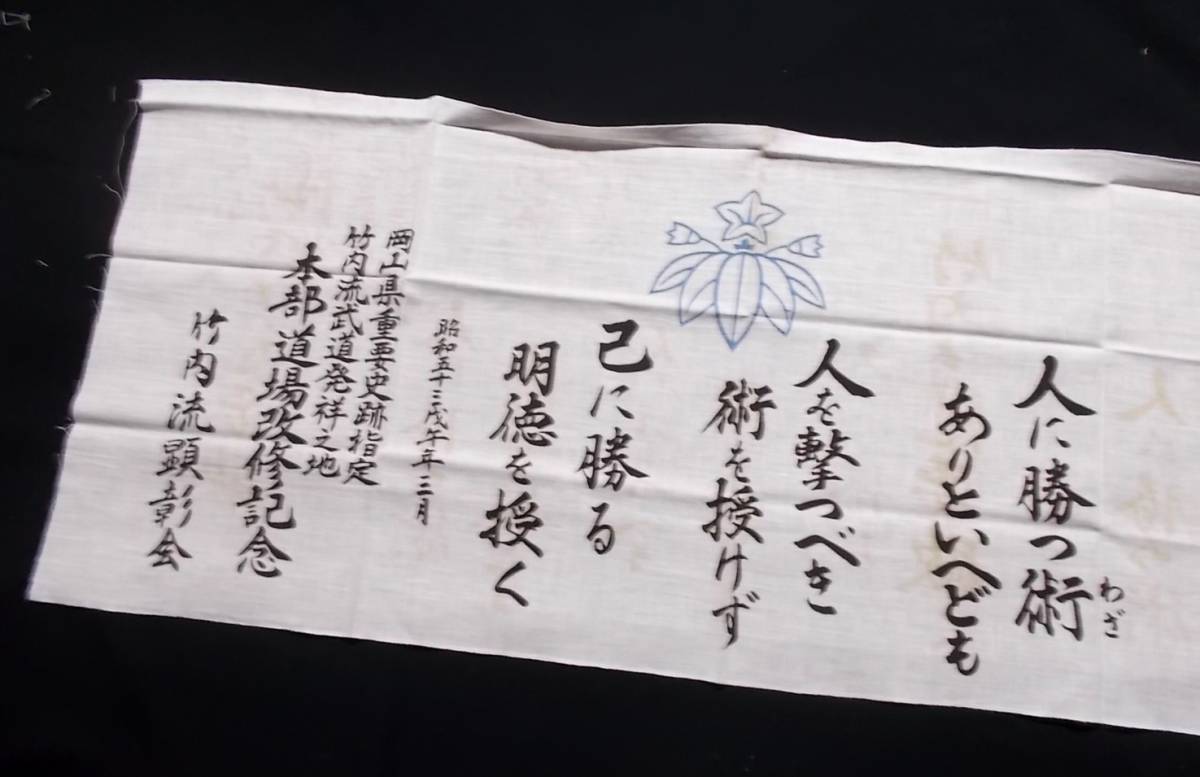 人に勝つ術
わざ
ありといへども
人を撃つべき
術を授けず
己に勝る
明徳を授く
昭和五十三戊午年三月
岡山県重要史跡指定
竹内流武道発祥之地
本部道場改修記念
竹内流顕彰会